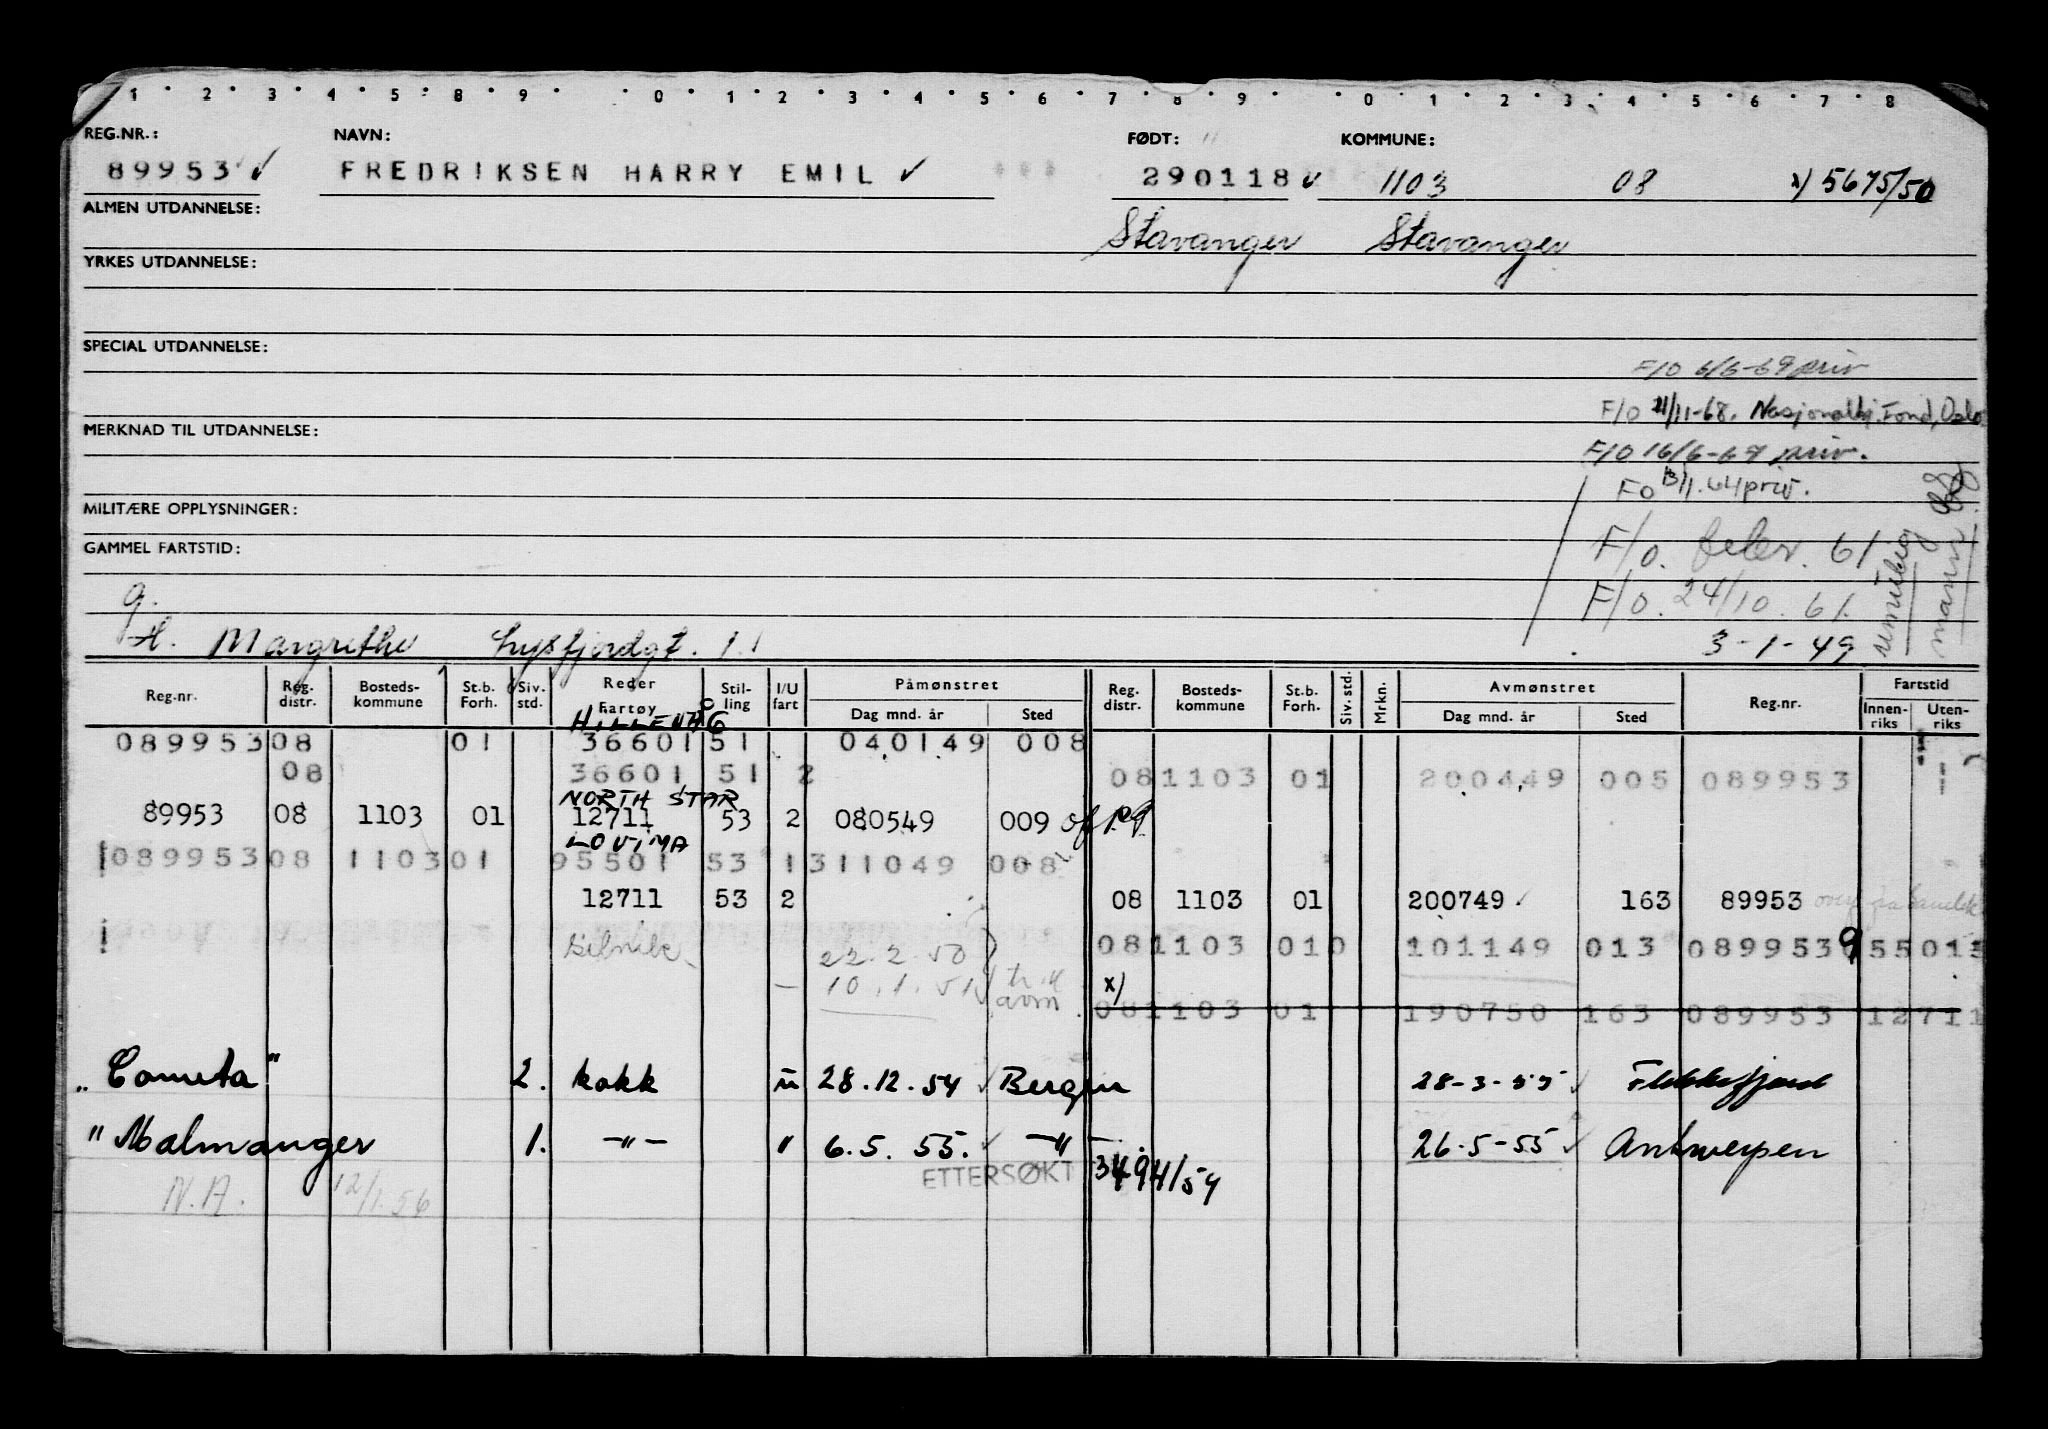 1 2 3 4 5 8 9 0 1 2 3 4 5 6 7 8 9 0 1 2 3 4 5 6 7 8
REG.NR.: NAVN: FØDT: KOMMUNE:
89953 ✓ FREDRIKSEN HARRY EMIL ✓ 290118 ✓ 1103 08 x) 5675/50
ALMEN UTDANNELSE: Stavanger Stavanger
YRKES UTDANNELSE:
SPECIAL UTDANNELSE:
F/O 6/6-69 priv
F/O 21/11-68. Nasjonalhj. Fond, Oslo
MERKNAD TIL UTDANNELSE:
F/O 16/6-67 priv.
Fo 13/1.64 priv.
MILITÆRE OPPLYSNINGER:
F/O. febr. 61
GAMMEL FARTSTID:
F/O. 24/10. 61.
g.
H. Margrethe Lysfjordgt. 11 3-1-49
Reg.nr. Reg. distr. Bosteds- kommune St.b. Forh. Siv. std. Reder Fartøy Stil- ling I/U fart Påmønstret Dag mnd. år Sted Reg. distr. Bosteds- kommune St.b. Forh. Siv. std. Mrkn. Avmønstret Dag mnd. år Sted Reg.nr. Fartstid Innen- riks Uten- riks
HILLEVÅG
089953 08 01 36601 51 040149 008
08 36601 51 2 08 1103 01 200449 005 089953
NORTH STAR
89953 08 1103 01 12711 53 2 080549 009
LOVIMA
089953 08 1103 01 95501 53 1 311049 008
12711 53 2 08 1103 01 200749 ✓ 163 89953
22.2.50 08 1103 01 0 101149 013 089953 9 55013
— 10.1.51 avm x)
08 1103 01 190750 163 089953 12711
"Cometa" 2. kokk u 28.12.54 ✓ Bergen 28-3-55 ✓ Flekkefjord
"Malmanger 1. —"— " 6.5.55. ✓ —"— 26-5-55 ✓ Antwerpen
ETTERSØKT 3494/54
N.A. 12/1.56